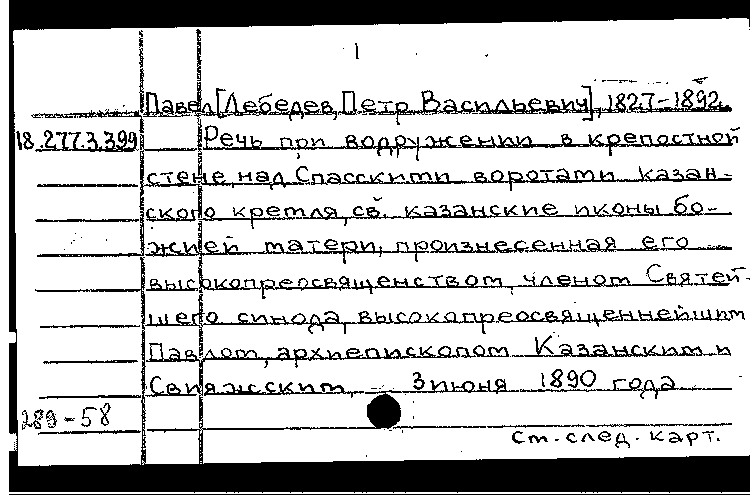 1
Павел [Лебедев, Петр Васильевич], 1827-1892.
18.277.3.399 Речь при водружении в крепостной
стене, над Спасскими воротами казан-
ского кремля, св. казанские иконы бо-
жией матери, произнесенная его
высокопреосвященством, членом Святей-
шего синода, высокопреосвященнейшим
Павлом, архиепископом Казанским и
Свияжским, 3 июня 1890 года
289-58
См. след. карт.